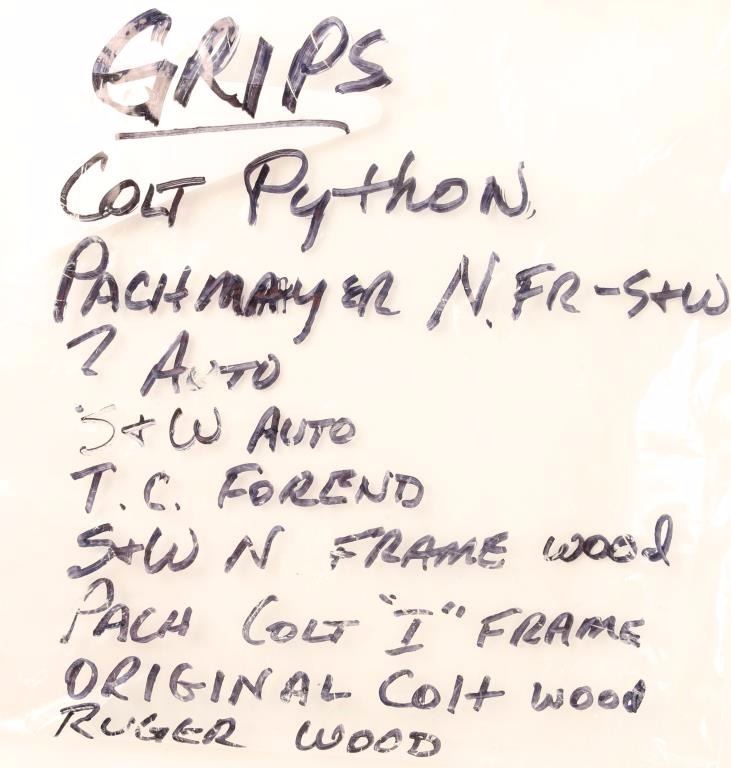 GRIPS
COLT Python.
PACHMAYER N. FR-S+W
? AUTO
S+W AUTO
T.C. FOREND
S+W N FRAME wood
PACH COLT "I" FRAME
ORIGINAL Colt wood
RUGER WOOD